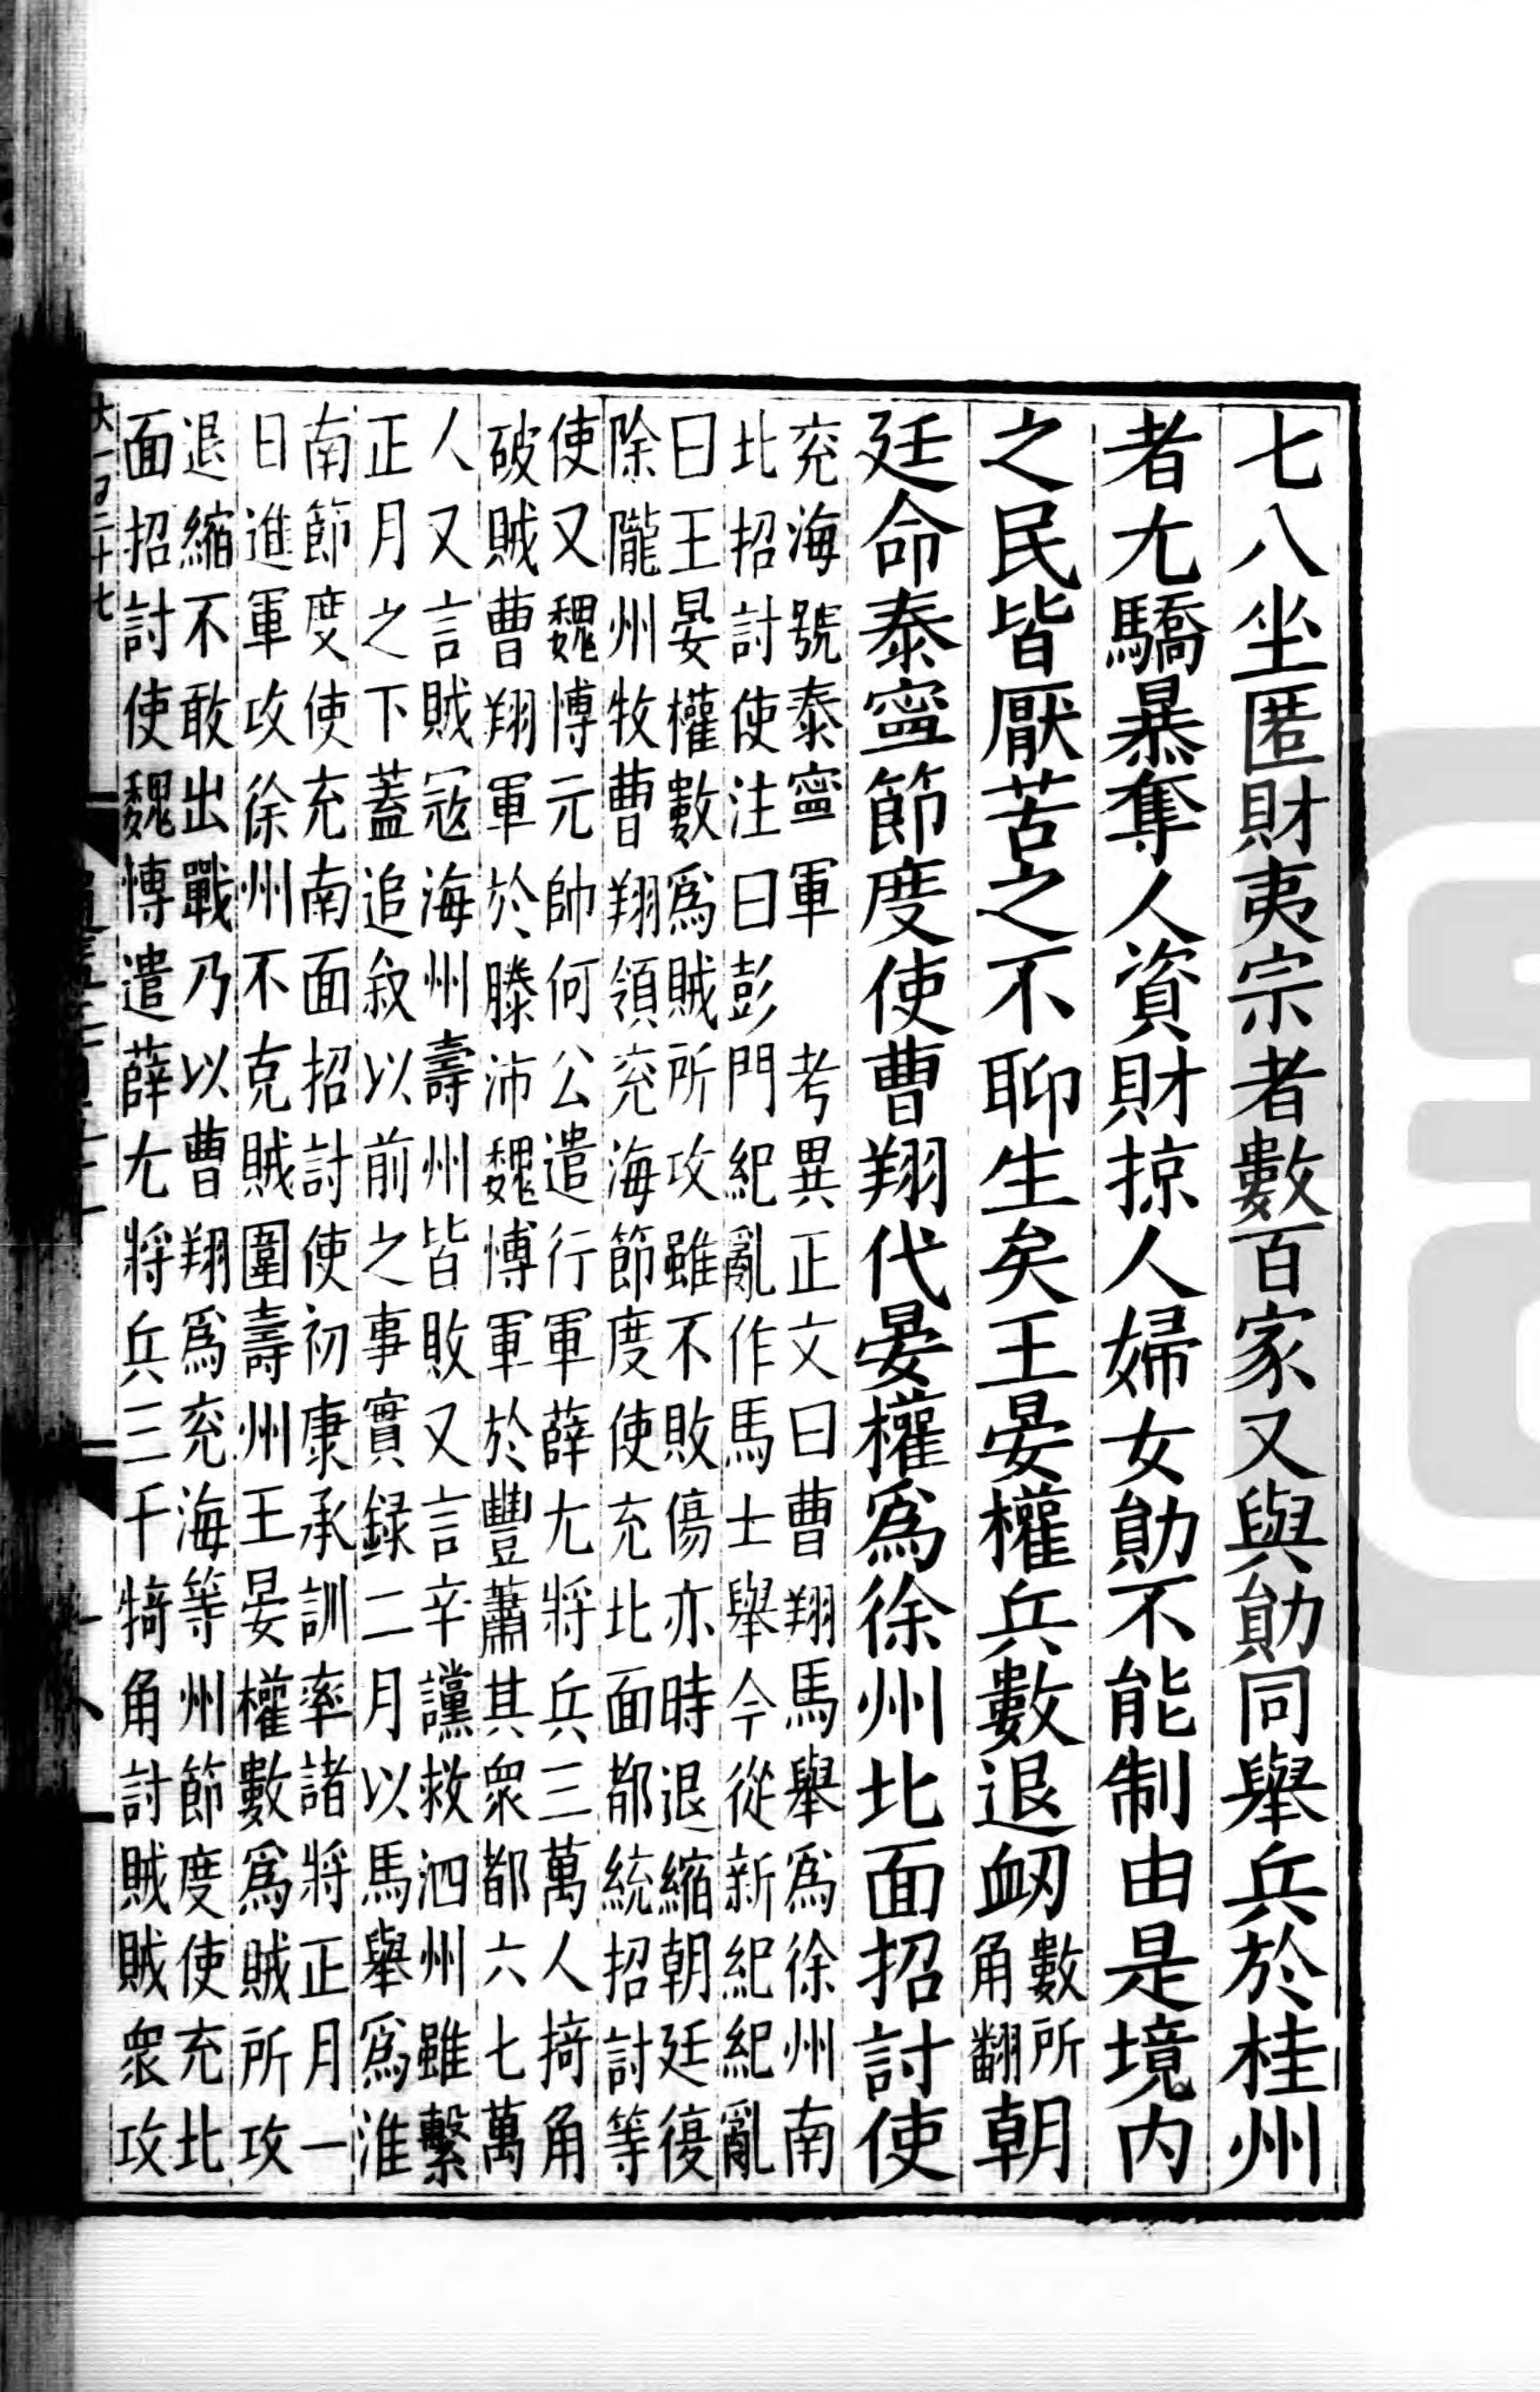 七八坐匿財夷宗者數百家又與勛同舉兵於桂州
者尤驕暴奪人資財掠人婦女勛不能制由是境內
之民皆厭苦之不聊生矣王晏權兵數退衂數所角翻朝
廷命泰寧節度使曹翔代晏權爲徐州北面招討使
兖海號泰寧軍 考異正文曰曹翔馬舉爲徐州南
北招討使注曰彭門紀亂作馬士舉今從新紀紀亂
曰王晏權數爲賊所攻雖不敗傷亦時退縮朝廷復
除隴州牧曹翔領兖海節度使充北面都統招討等
使又魏博元帥何公遣行軍薛尤將兵三萬人掎角
破賊曹翔軍於滕沛魏博軍於豐蕭其衆都六七萬
人又言賊寇海州壽州皆敗又言辛讜救泗州雖繫
正月之下蓋追叙以前之事實録二月以馬舉爲淮
南節度使充南面招討使初康承訓率諸將正月一
日進軍攻徐州不克賊圍壽州王晏權數爲賊所攻
退縮不敢出戰乃以曹翔爲兖海等州節度使充北
面招討使魏博遣薛尤將兵三千犄角討賊賊衆攻